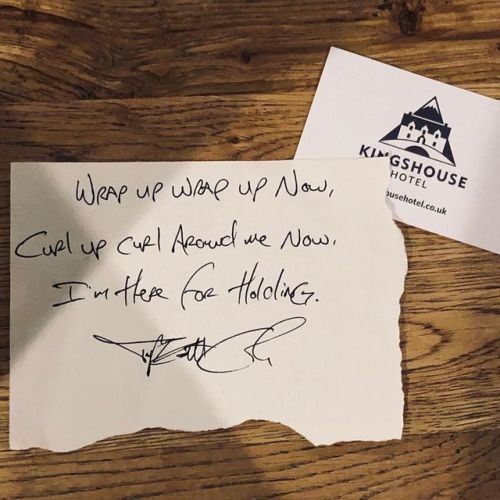 WRAP UP WRAP UP NOW,
CURL UP CURL AROUND ME NOW.
I'm HERE FOR HOLDING.
KINGSHOUSE
HOTEL
ousehotel.co.uk